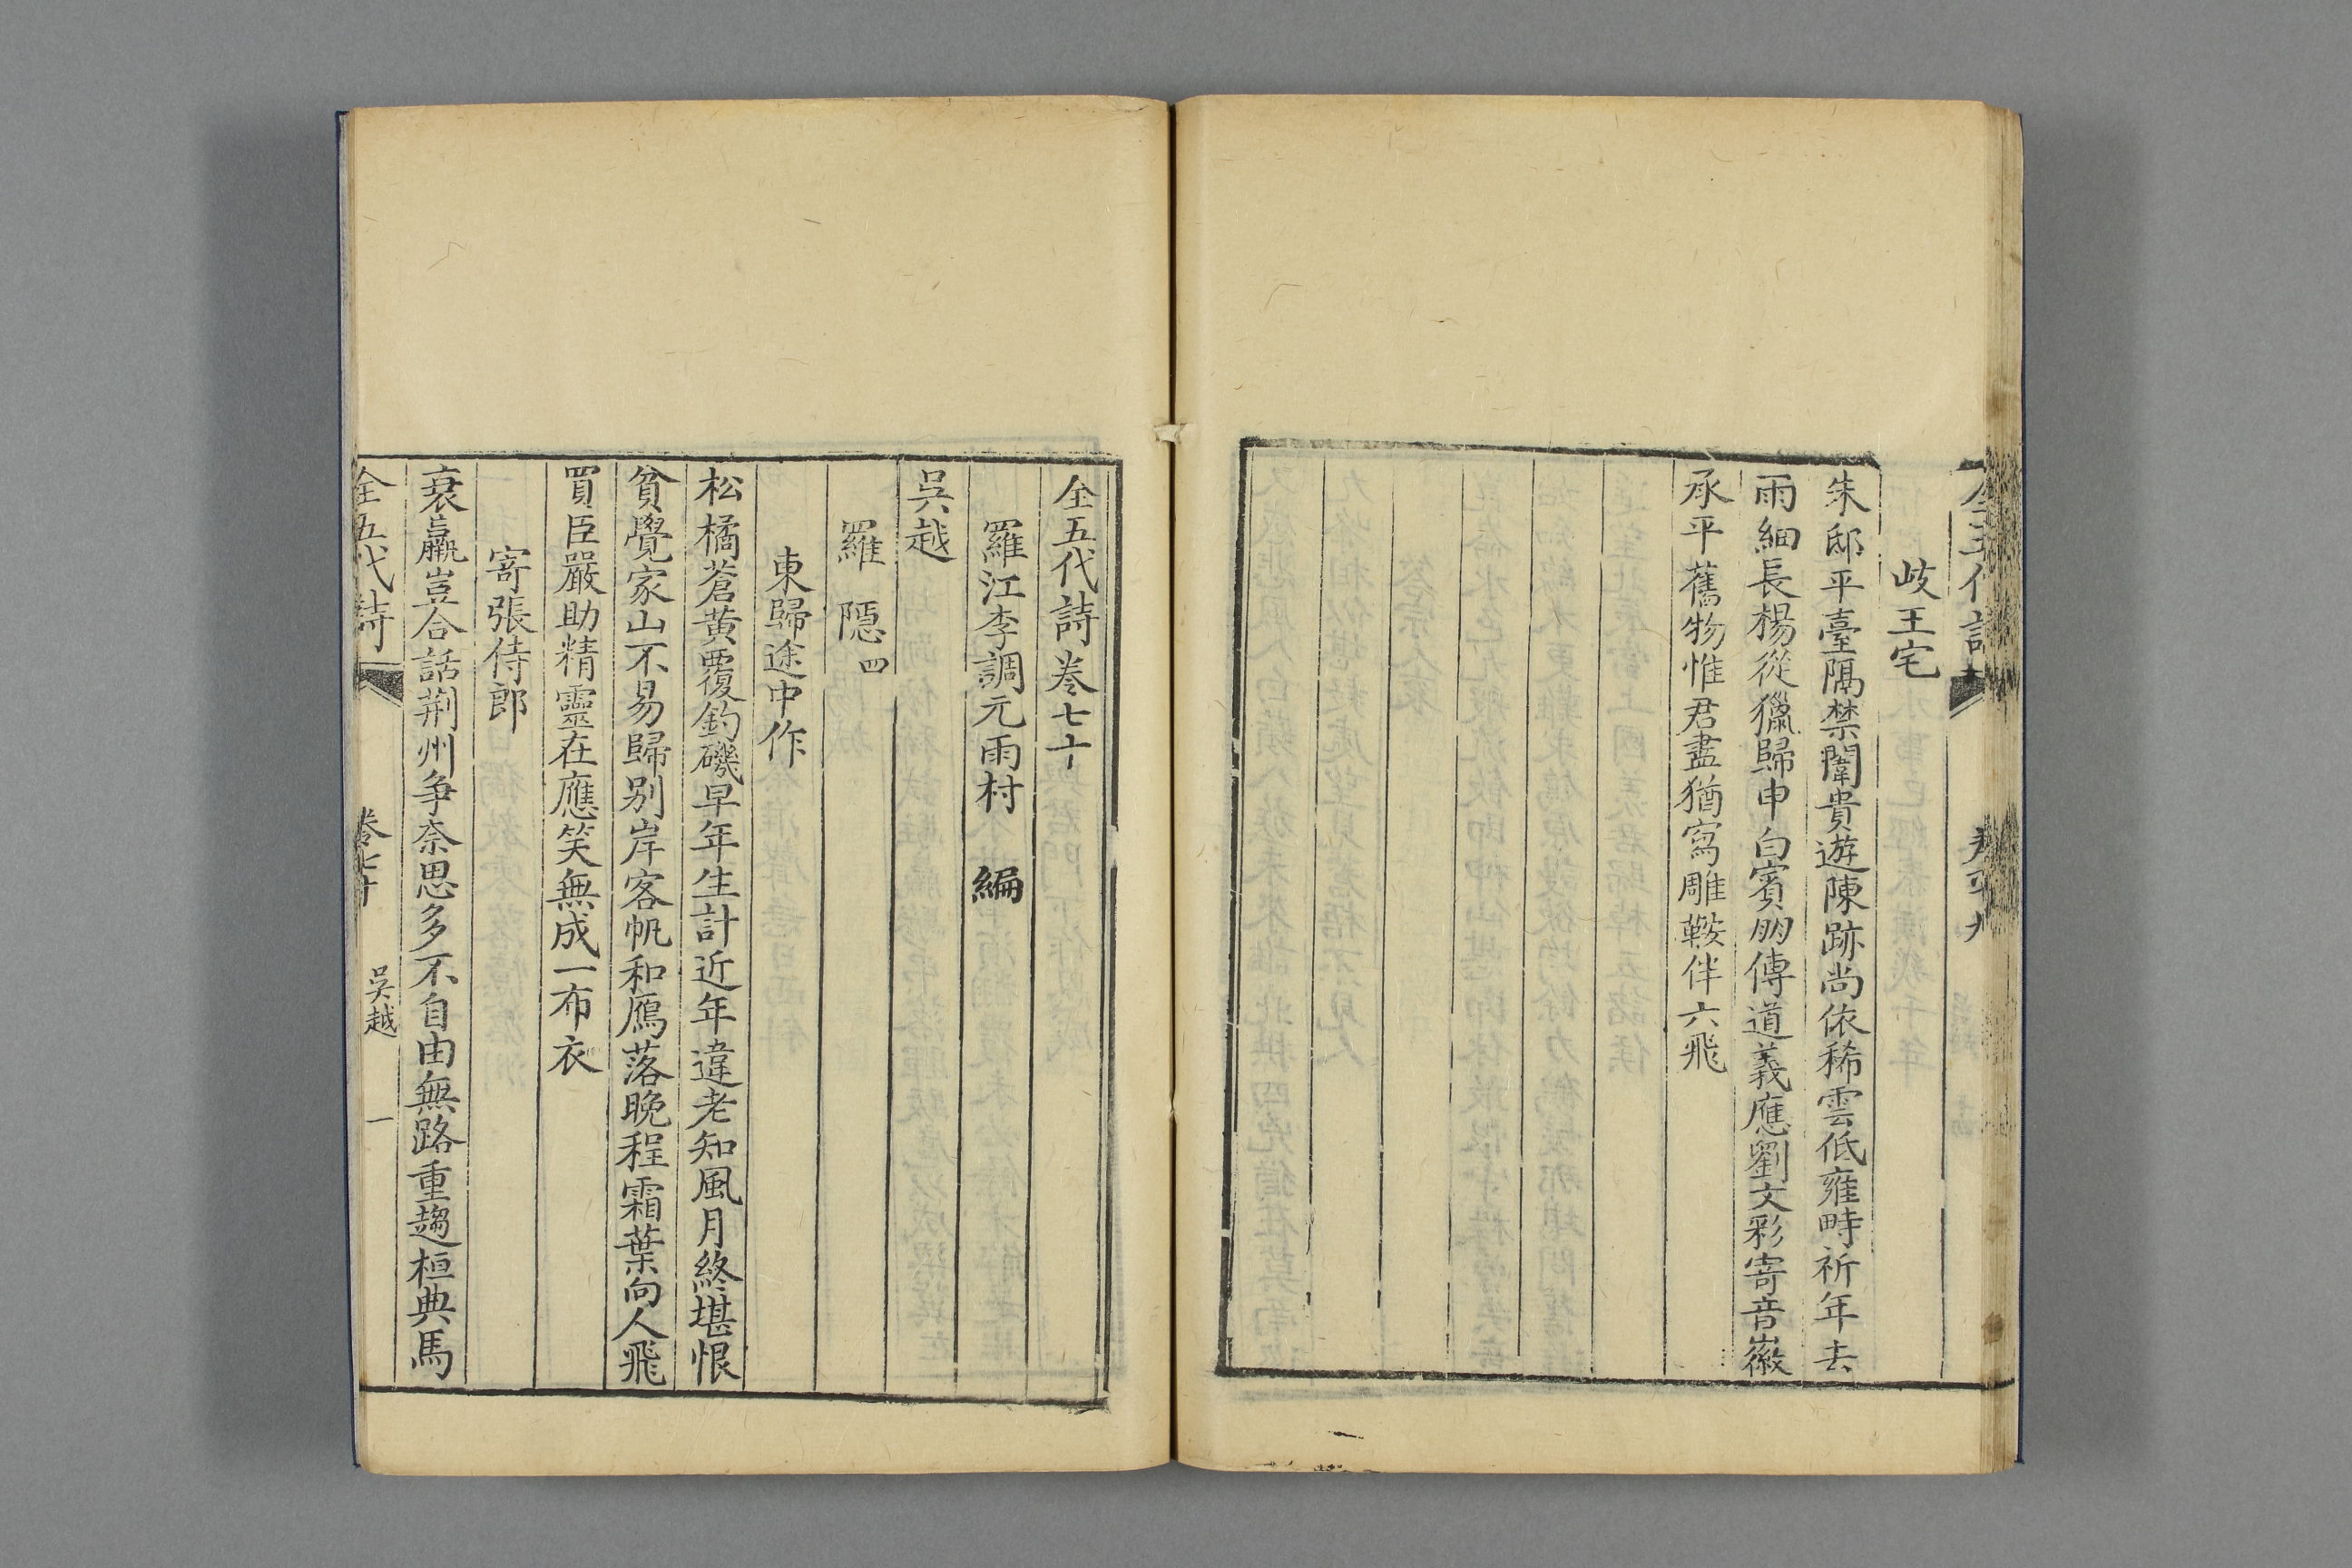 岐王宅
朱邸平臺隔禁闈貴遊陳跡尚依稀雲低雍畤祈年去
雨細長楊從獵歸申白賓朋傳道義應劉文彩寄音徽
承平舊物惟君盡猶寫雕鞍伴六飛
全五代詩卷七十
羅江李調元雨村 編
吳越
羅 隱 四
東歸途中作
松橘蒼黃覆釣磯早年生計近年違老知風月終堪恨
貧覺家山不易歸别岸客帆和鴈落晚程霜葉向人飛
買臣嚴助精靈在應笑無成一布衣
寄張侍郎
衰羸豈合話荆州争奈思多不自由無路重趨桓典馬
全五代詩 卷七十 吳越 一